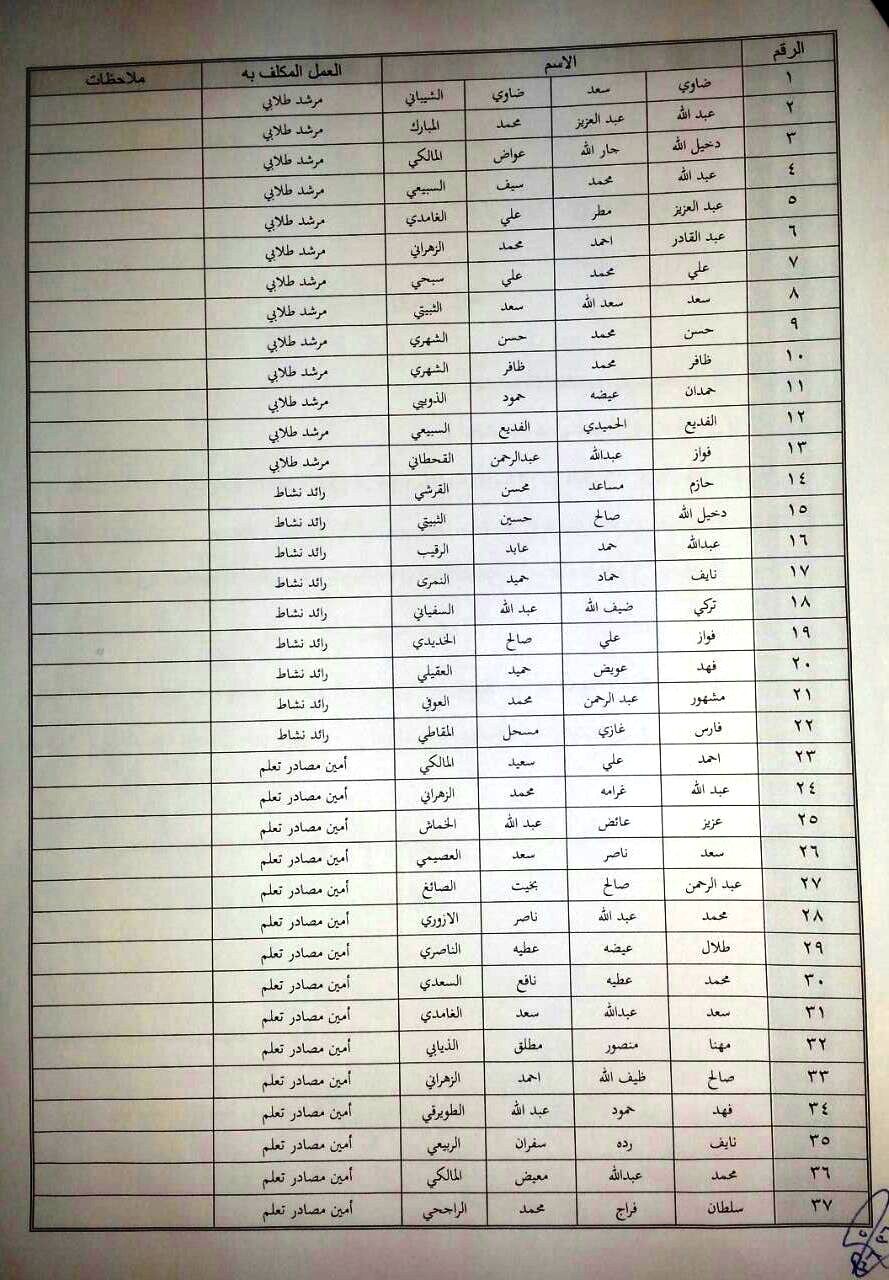 الرقم الاسم العمل المكلف به ملاحظات
١ ضاوي سعد ضاوي الشيباني مرشد طلابي
٢ عبد الله عبد العزيز محمد المبارك مرشد طلابي
٣ دخيل الله جار الله عواض المالكي مرشد طلابي
٤ عبد الله محمد سيف السبيعي مرشد طلابي
٥ عبد العزيز مطر علي الغامدي مرشد طلابي
٦ عبد القادر احمد محمد الزهراني مرشد طلابي
٧ علي محمد علي سبحي مرشد طلابي
٨ سعد سعد الله سعد الثبيتي مرشد طلابي
٩ حسن محمد حسن الشهري مرشد طلابي
١٠ ظافر محمد ظافر الشهري مرشد طلابي
١١ حمدان عيضه حمود الذويبي مرشد طلابي
١٢ الفديع الحميدي الفديع السبيعي مرشد طلابي
١٣ فواز عبدالله عبدالرحمن القحطاني مرشد طلابي
١٤ حازم مساعد محسن القرشي رائد نشاط
١٥ دخيل الله صالح حسين الثبيتي رائد نشاط
١٦ عبدالله حمد عابد الرقيب رائد نشاط
١٧ نايف حماد حميد النمرى رائد نشاط
١٨ تركي ضيف الله عبد الله السفياني رائد نشاط
١٩ فواز علي صالح الخديدي رائد نشاط
٢٠ فهد عويض حميد العقيلي رائد نشاط
٢١ مشهور عبد الرحمن محمد العوفي رائد نشاط
٢٢ فارس غازي مسحل المقاطي رائد نشاط
٢٣ احمد علي سعيد المالكي أمين مصادر تعلم
٢٤ عبد الله غرامه محمد الزهراني أمين مصادر تعلم
٢٥ عزيز عائض عبد الله الخماش أمين مصادر تعلم
٢٦ سعد ناصر سعد العصيمي أمين مصادر تعلم
٢٧ عبد الرحمن صالح بخيت الصائغ أمين مصادر تعلم
٢٨ محمد عبد الله ناصر الازوري أمين مصادر تعلم
٢٩ طلال عيضه عطيه الناصري أمين مصادر تعلم
٣٠ محمد عطيه نافع السعدي أمين مصادر تعلم
٣١ سعد عبدالله سعد الغامدي أمين مصادر تعلم
٣٢ مهنا منصور مطلق الذيابي أمين مصادر تعلم
٣٣ صالح ظيف الله احمد الزهراني أمين مصادر تعلم
٣٤ فهد حمود عبد الله الطويرقي أمين مصادر تعلم
٣٥ نايف رده سفران الربيعي أمين مصادر تعلم
٣٦ محمد عبدالله معيض المالكي أمين مصادر تعلم
٣٧ سلطان فراج محمد الراجحي أمين مصادر تعلم